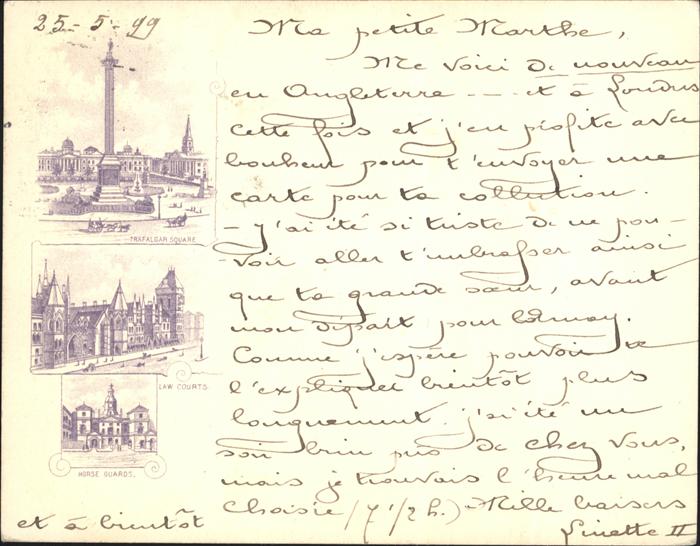 25-5-99
Ma petite Marthe,
Me voici de nouveau
en Angleterre — et à Londres
cette fois et j'en profite avec
bonheur pour t'envoyer une
carte pour ta collection.
- J'ai été si triste de ne pou-
voir aller t'embrasser ainsi
que ta grande sœur, avant
mon départ pour
Comme j'espère pouvoir te
l'expliquer bientôt plus
longuement, j'ai été un
soir bien près de chez vous,
mais je trouvais l'heure mal
choisie (7 1/2 h.) - Mille baisers
et à bientôt
Linette II
TRAFALGAR SQUARE
LAW COURTS
HORSE GUARDS.